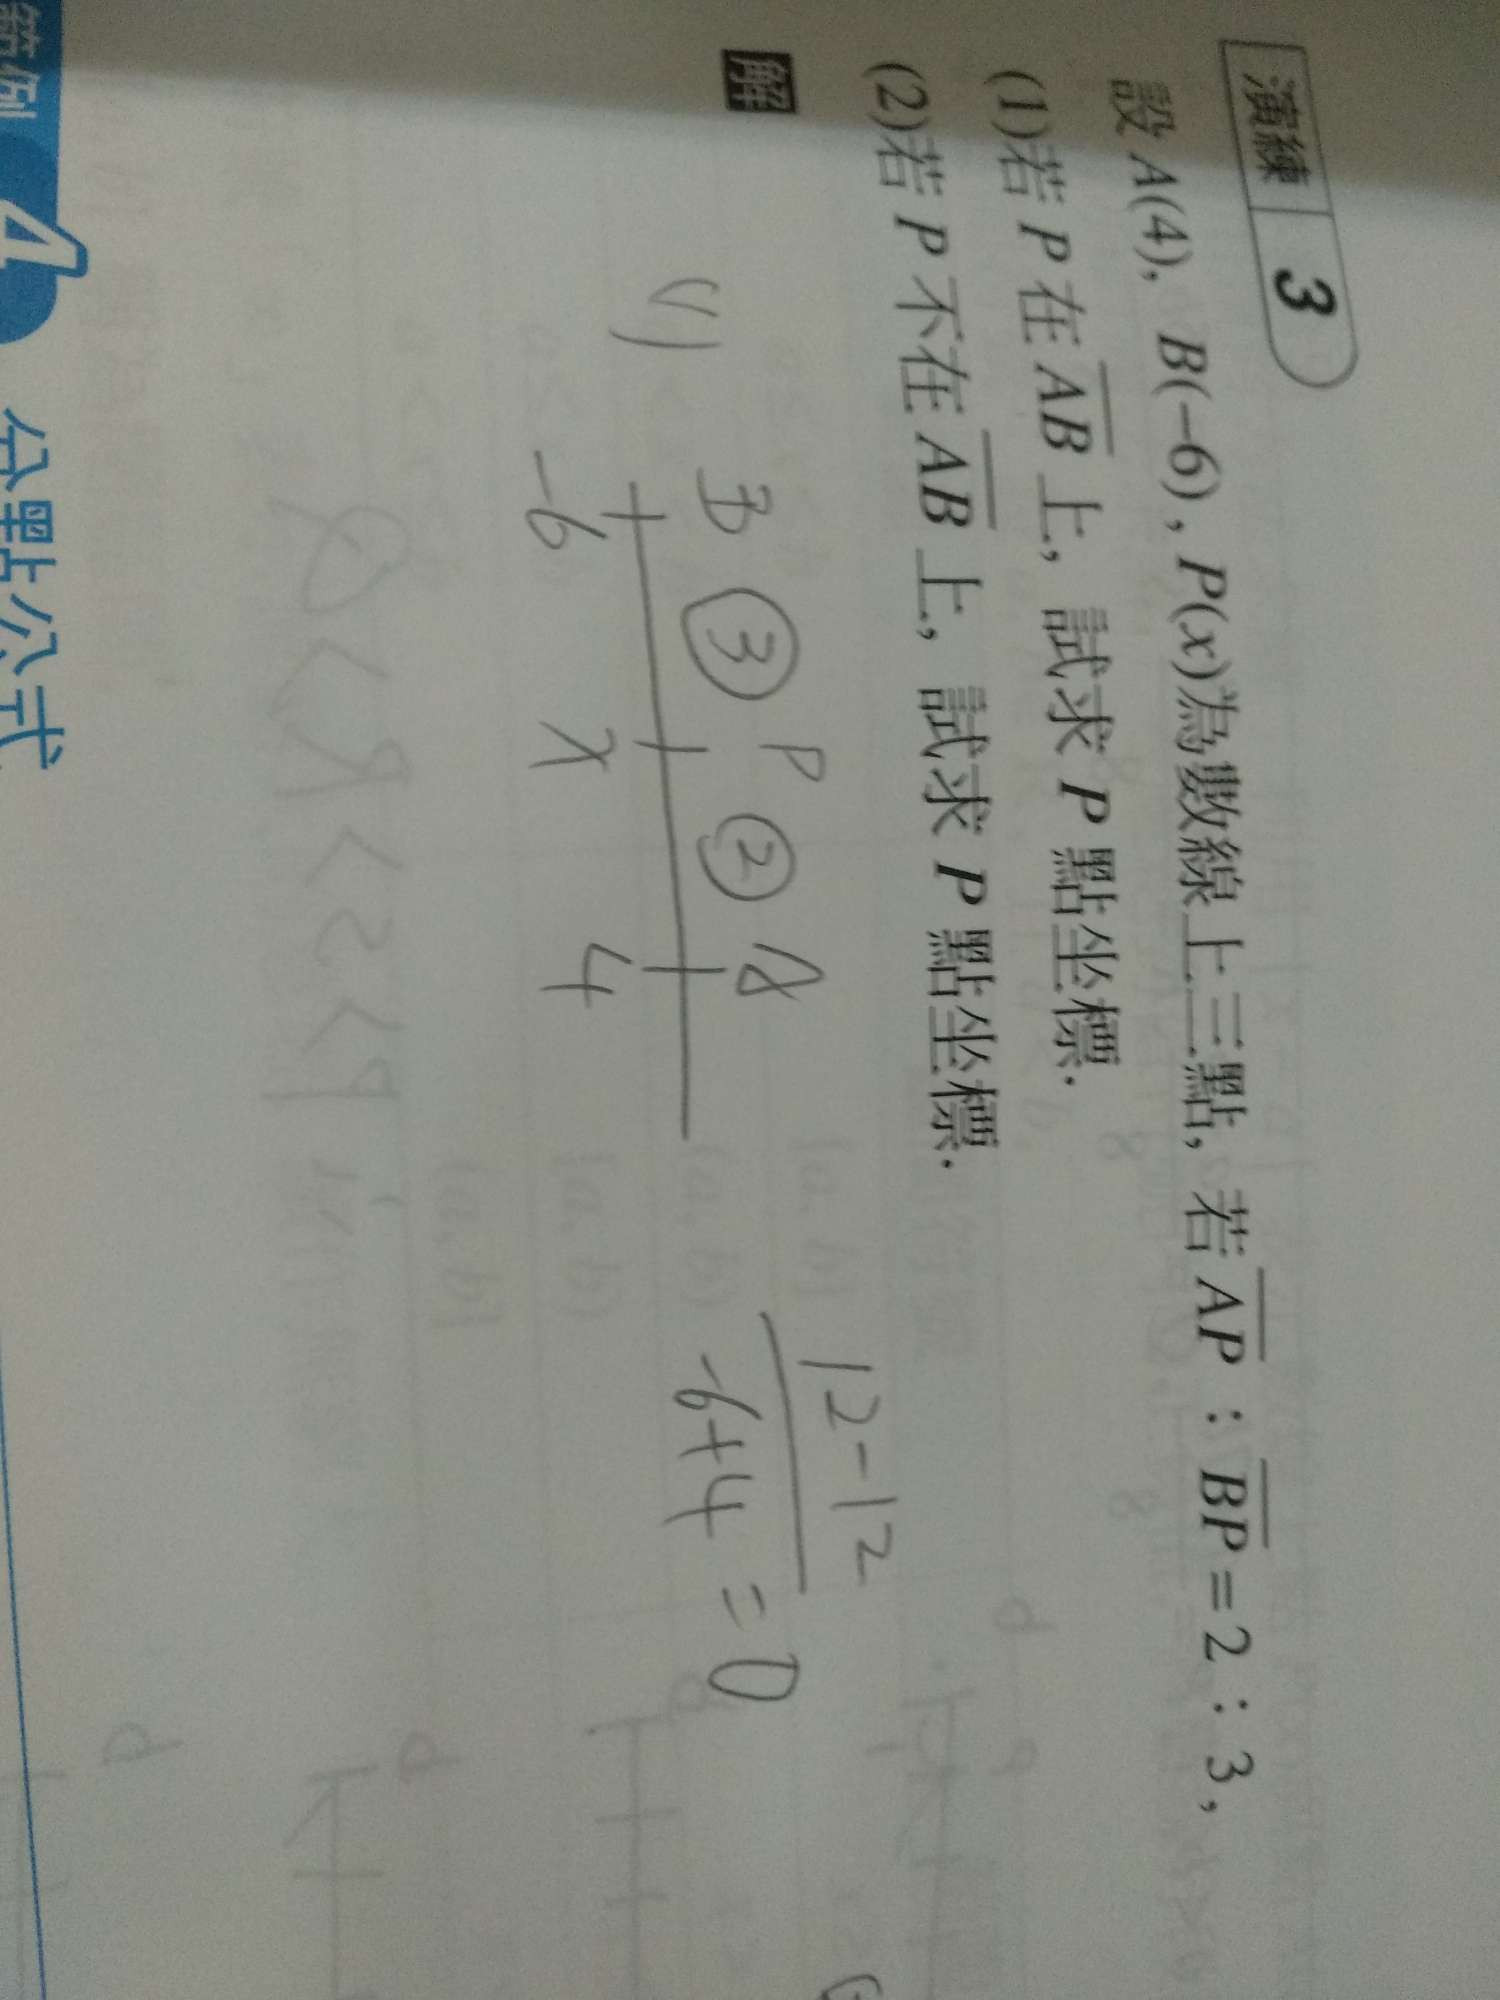 演練 3
設 A(4), B(−6), P(x)為數線上三點, 若 AP : BP = 2 : 3,
(1)若 P 在 AB 上, 試求 P 點坐標.
(2)若 P 不在 AB 上, 試求 P 點坐標.
解
(1) B ③ P ② A
-6 x 4
12-12
-6+4 = 0
範例 4 分點公式